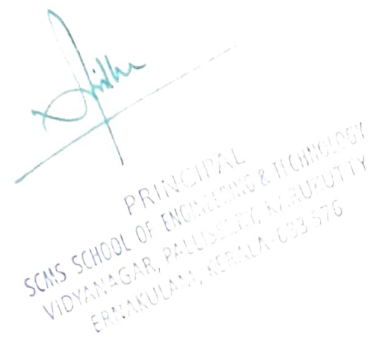 PRINCIPAL
SCMS SCHOOL OF ENGINEERING & TECHNOLOGY
VIDYANAGAR, PALLISSERY, KARUKUTTY
ERNAKULAM, KERALA-683 576